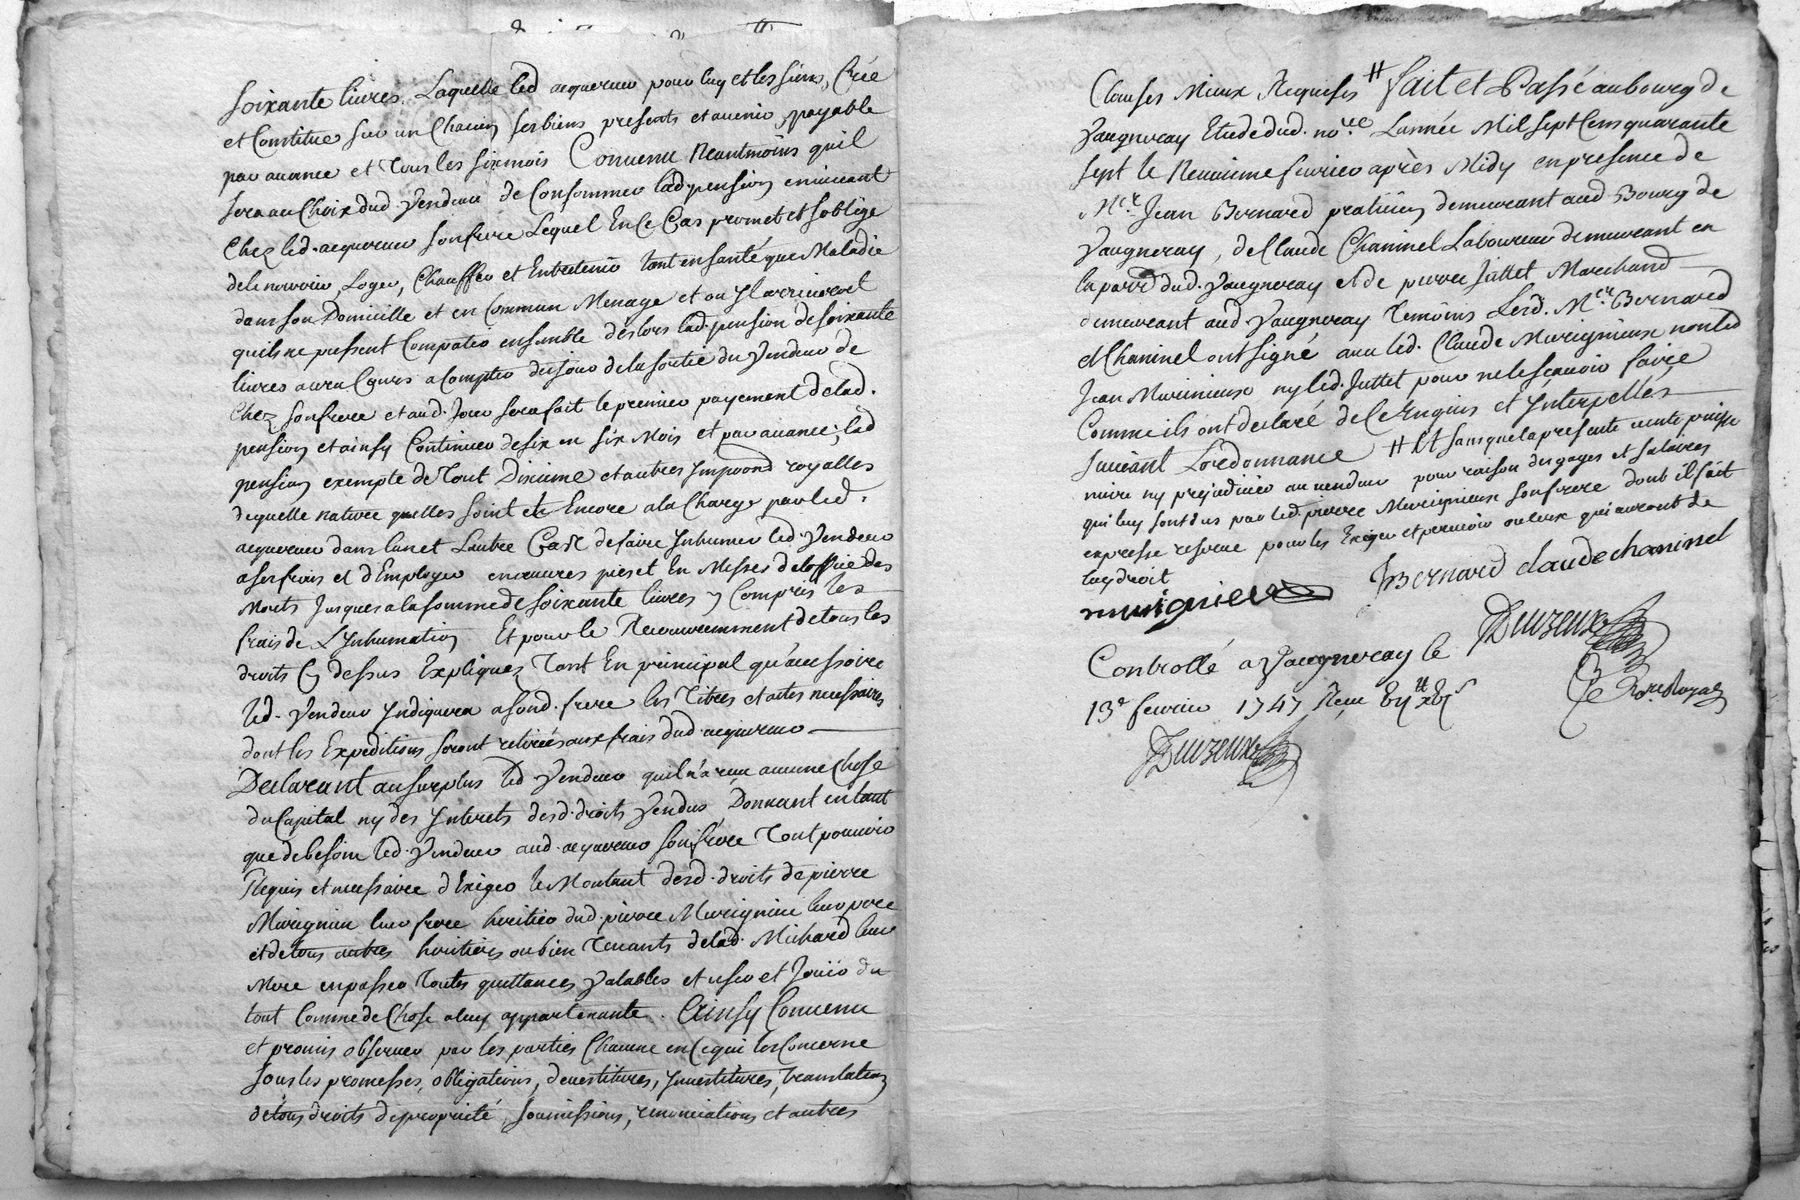 soixante livres. Laquelle led acquereur pour luy et les siens, Crée
et Constitue sur un Chacun ses biens presents et avenir, payable
par avance et Tous les six mois Convenu Neantmoins qu'il
sera au Choix dud Vendeur de Consommer lad. pension en vivant
Chez led. acquereur son frere Lequel En Ce Cas promet et s'oblige
de le nourrir, Loger, Chauffer et Entretenir tant en santé que Maladie
dans son Domicille et en Commun Menage et ou Il arriveroit
quils ne pussent Compatir ensemble des lors lad. pension de soixante
livres aura Cours a Compter du jour de la sortie du Vendeur de
Chez son frere et aud. Jour sera fait le premier payement de lad.
pension et ainsy Continuer de six en six Mois et par avance, lad
pension exempte de Tout Dixieme et autres Impoond royalles
de quelle nature quelles soint et Encore a la Charge par led.
acquereur dans lun et Lautre Cas de faire Inhumer led. Vendeur
a ses frais et d'Employer en œuvres pies et En Messes de loffice des
Morts Jusques a la somme de soixante livres y Compris les
frais de L'Inhumation Et pour le Recouvremment de tous les
droits Cy dessus Expliquez Tant En principal qu'accessoire
led. Vendeur Indiquera a sond. frere les Titres et actes necessaires
dont les Expeditions seront retirées aux frais dud. acquereur
Declarant au surplus led Vendeur quil n'a reçu aucune Chose
du Capital ny des Interets desd. droits Vendus Donnant en tant
que de besoin led. Vendeur aud. acquereur son frere Tout pouvoir
Requis et necessaire d'Exiger le Montant desd. droits de pierre
Murignieu leur frere heritier dud. pierre Murignieu leur pere
et de tous autres heritiers ou bien Tenants de lad. Michard leur
Mere en passer Toutes quittances Valables et user et Jouïr du
tout Comme de Chose a luy appartenante. Ainsy Convenu
et promis observer par les parties Chacune en Ce qui les Concerne
sous les promesses, obligations, devestitures, Investitures, translation
de tous droits de propriété, soumissions, renonciations et autres
Clauses Mieux Requises # fait et Passé au bourg de
Vaugneray Etude dud. no.re Lannée Mil sept Cens quarante
sept le Neuvieme fevrier après Midy en presence de
M.r Jean Bernard praticien demeurant aud Bourg de
Vaugneray, de Claude Chaninel Laboureur demeurant en
la parr.e dud. Vaugneray et de pierre Juttet Marchand
demeurant aud Vaugneray Temoins Lesd. M.r Bernard
et Chaninel ont signé avec led. Claude Murignieux non led
Jean Murinieux ny led. Juttet pour ne le sçavoir faire
Comme ils ont declaré de Ce Enquis et Interpellés
suivant Lordonnance # Et sans que la presente vente puisse
nuire ny prejudicier au vendeur pour raison des gages et salaires
qui luy sont dus par led. pierre Murignieux son frere dont il fait
expresse reserve pour les Exiger et percevoir ou ceux qui auront de
luy droit
murignieu
JBernard claude chaninel
Duzeux
Controllé a Vaugneray le
13e fevrier 1747 Reçu
Duzeux